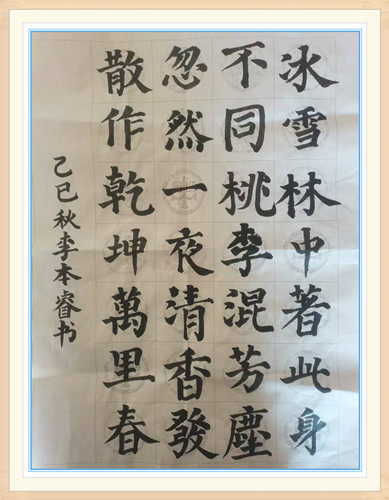 冰雪林中著此身
不同桃李混芳塵
忽然一夜清香發
散作乾坤萬里春
乙巳秋李本睿书